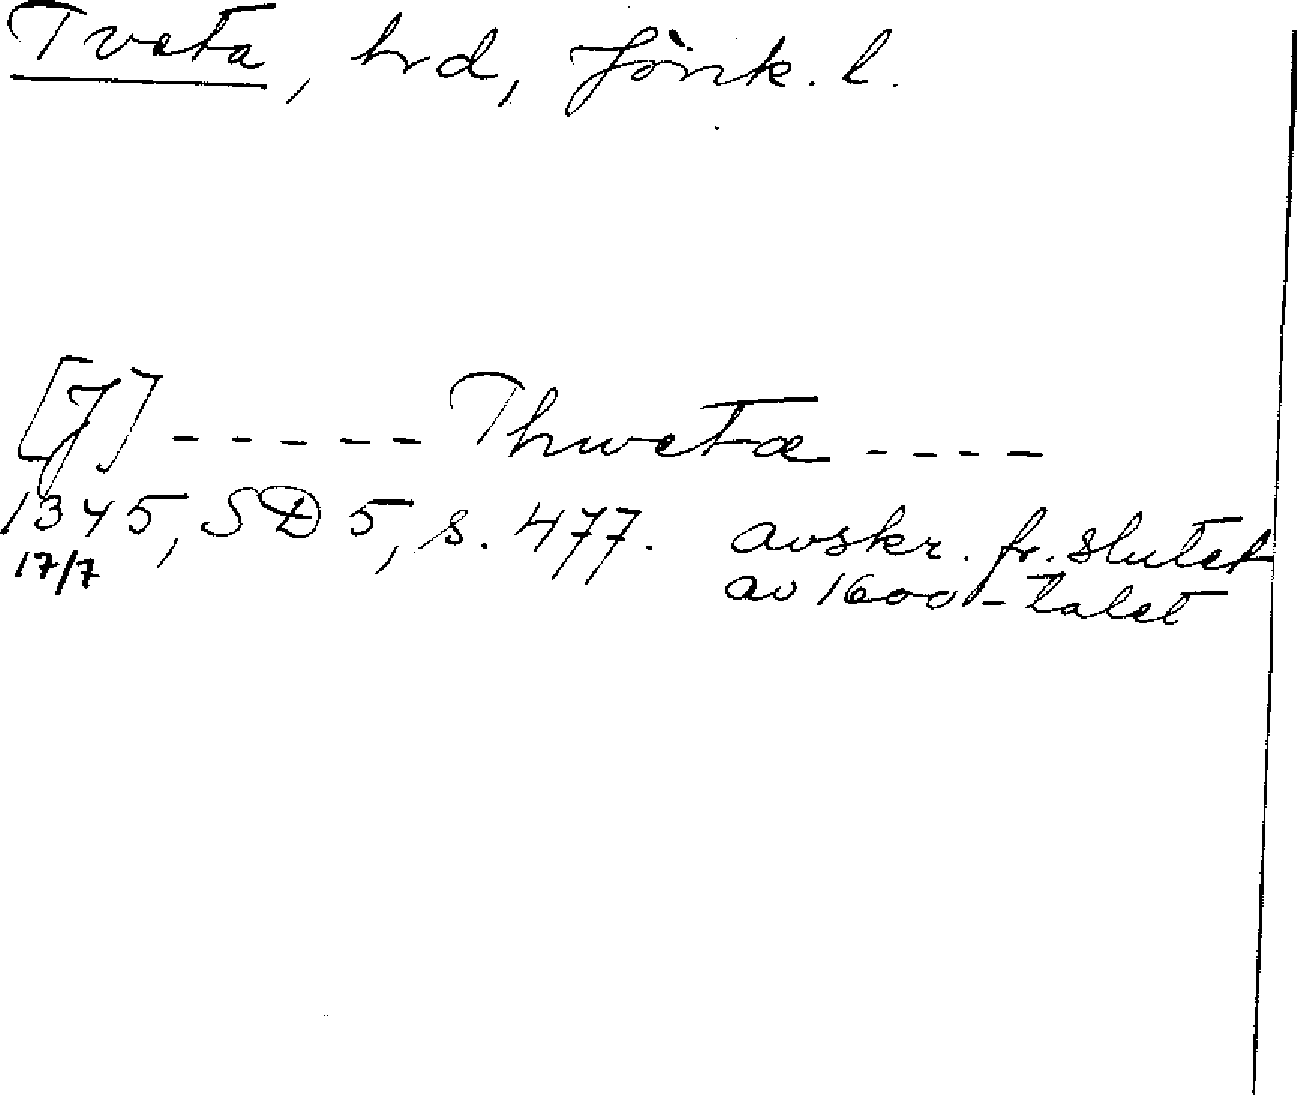 Tveta, hrd, Jönk. l.
[J] ----- Thwetæ ----
1345, SD 5, s. 477. avskr. fr. slutet
17/7 av 1600-talet